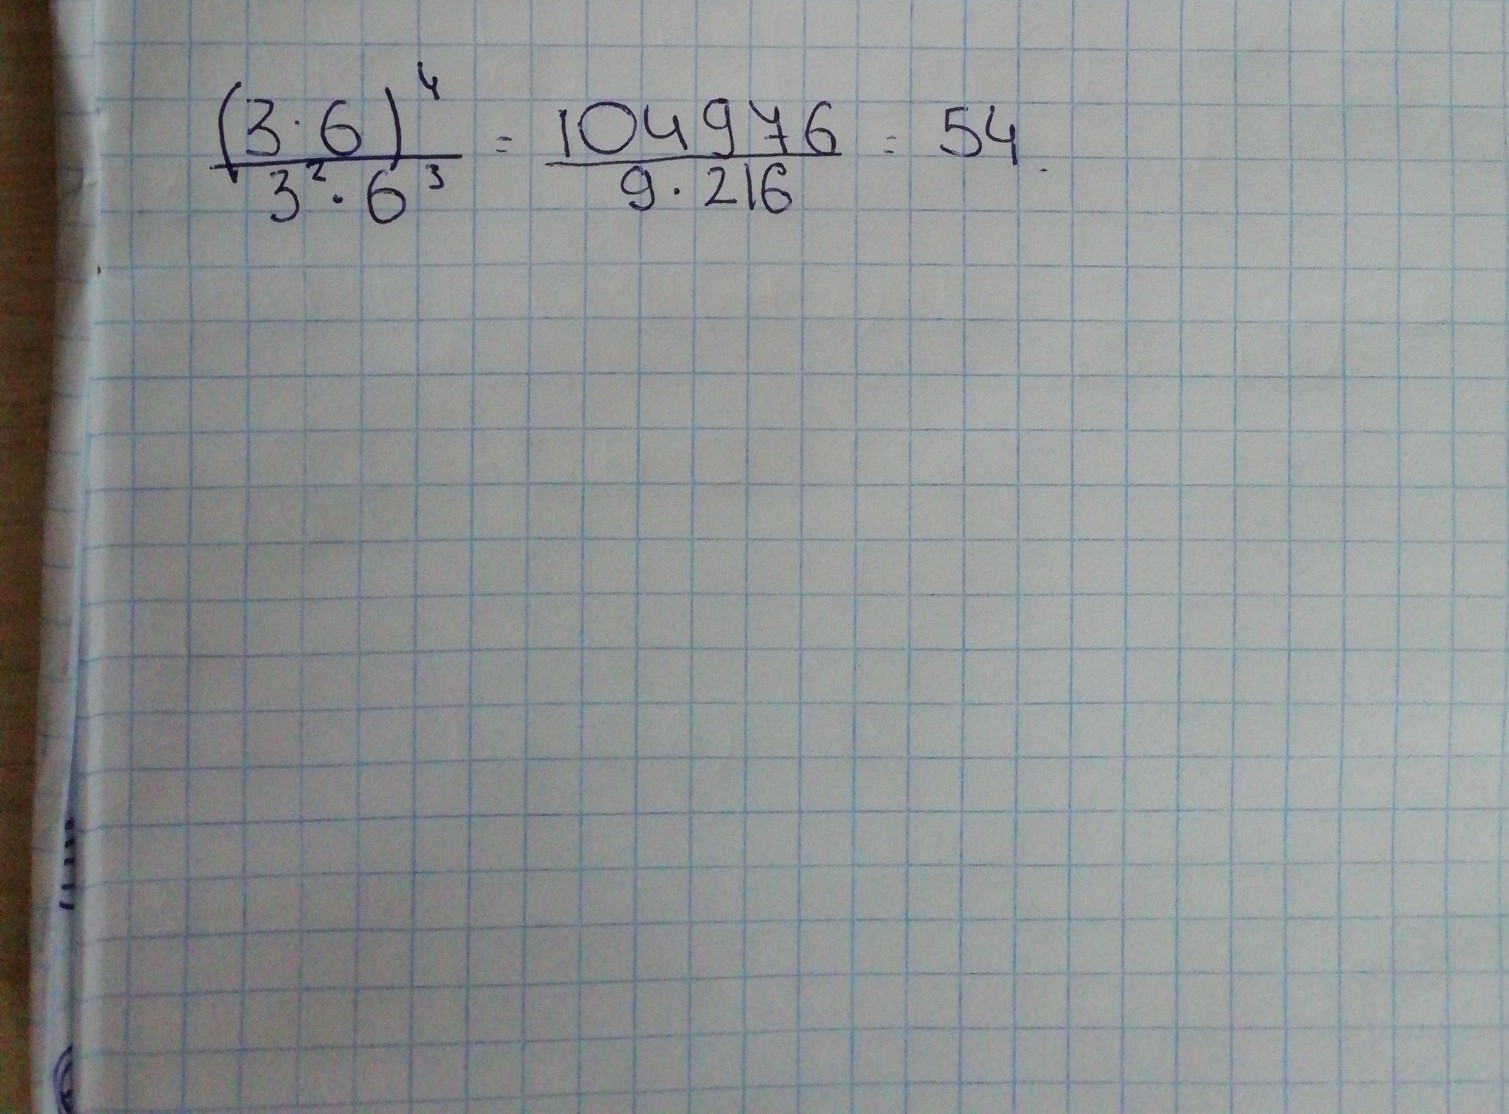 (3·6)⁴/3²·6³ = 104976/9·216 = 54.